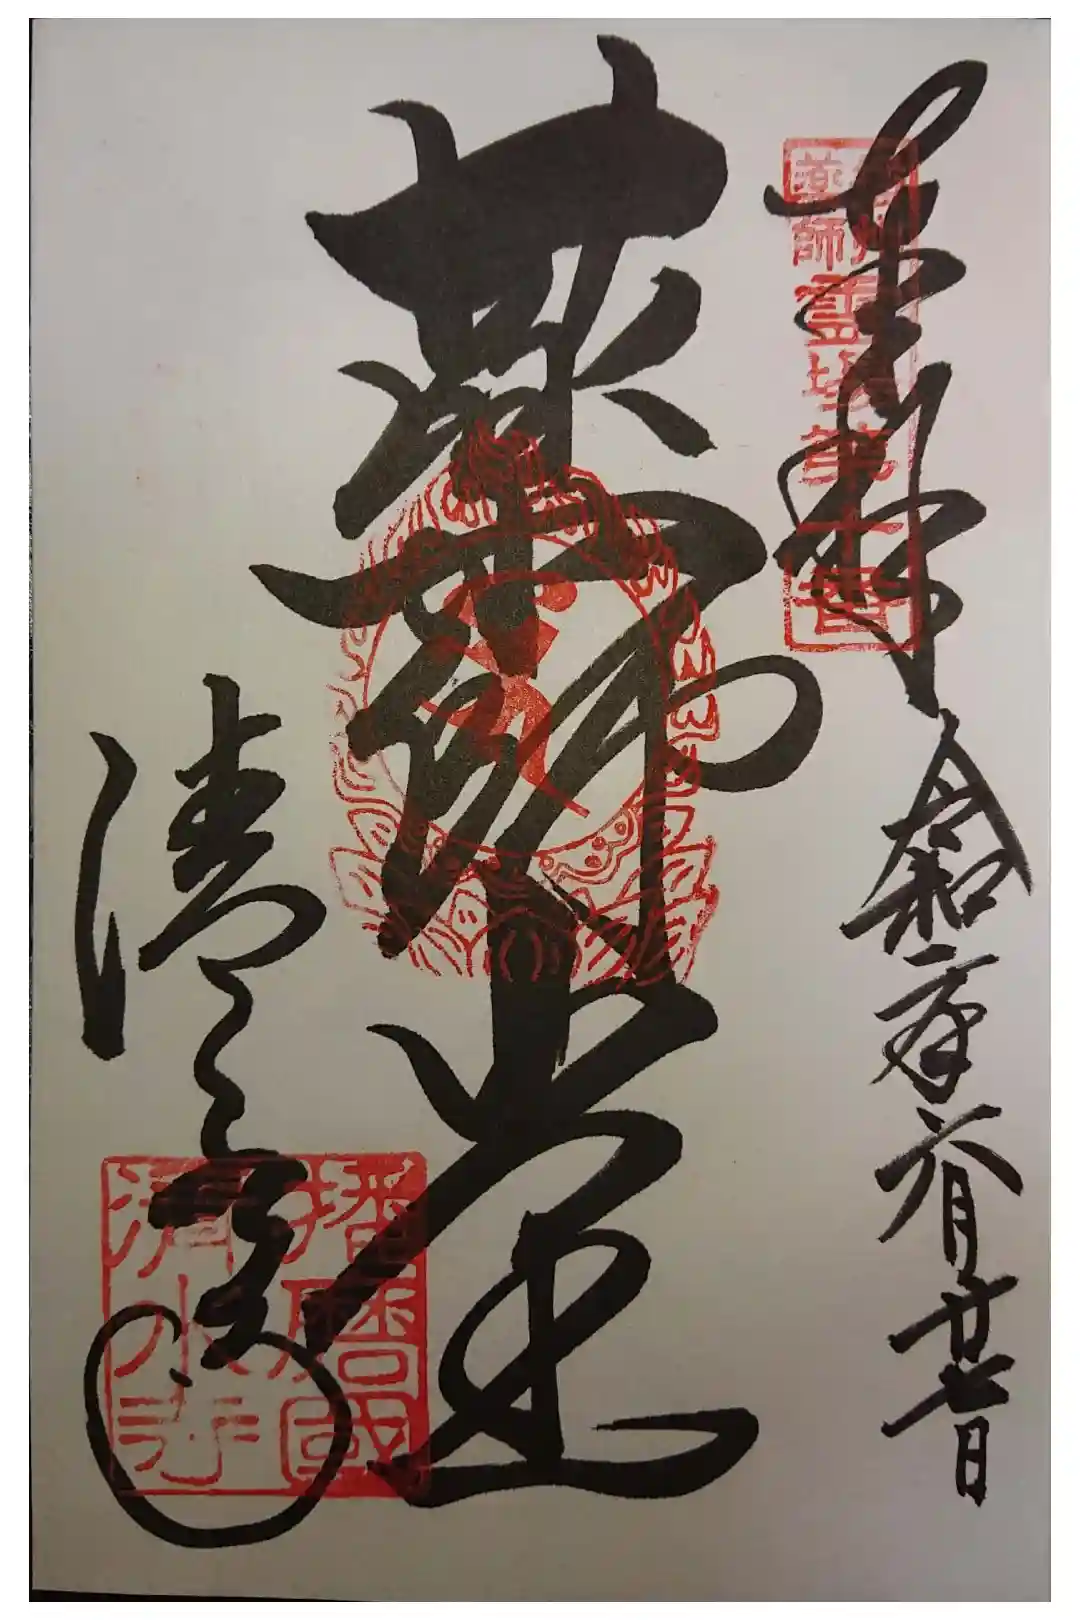 奉拝
播州
薬師霊場第十番
令和二年六月廿七日
薬師堂
清水寺
播磨國
清水寺